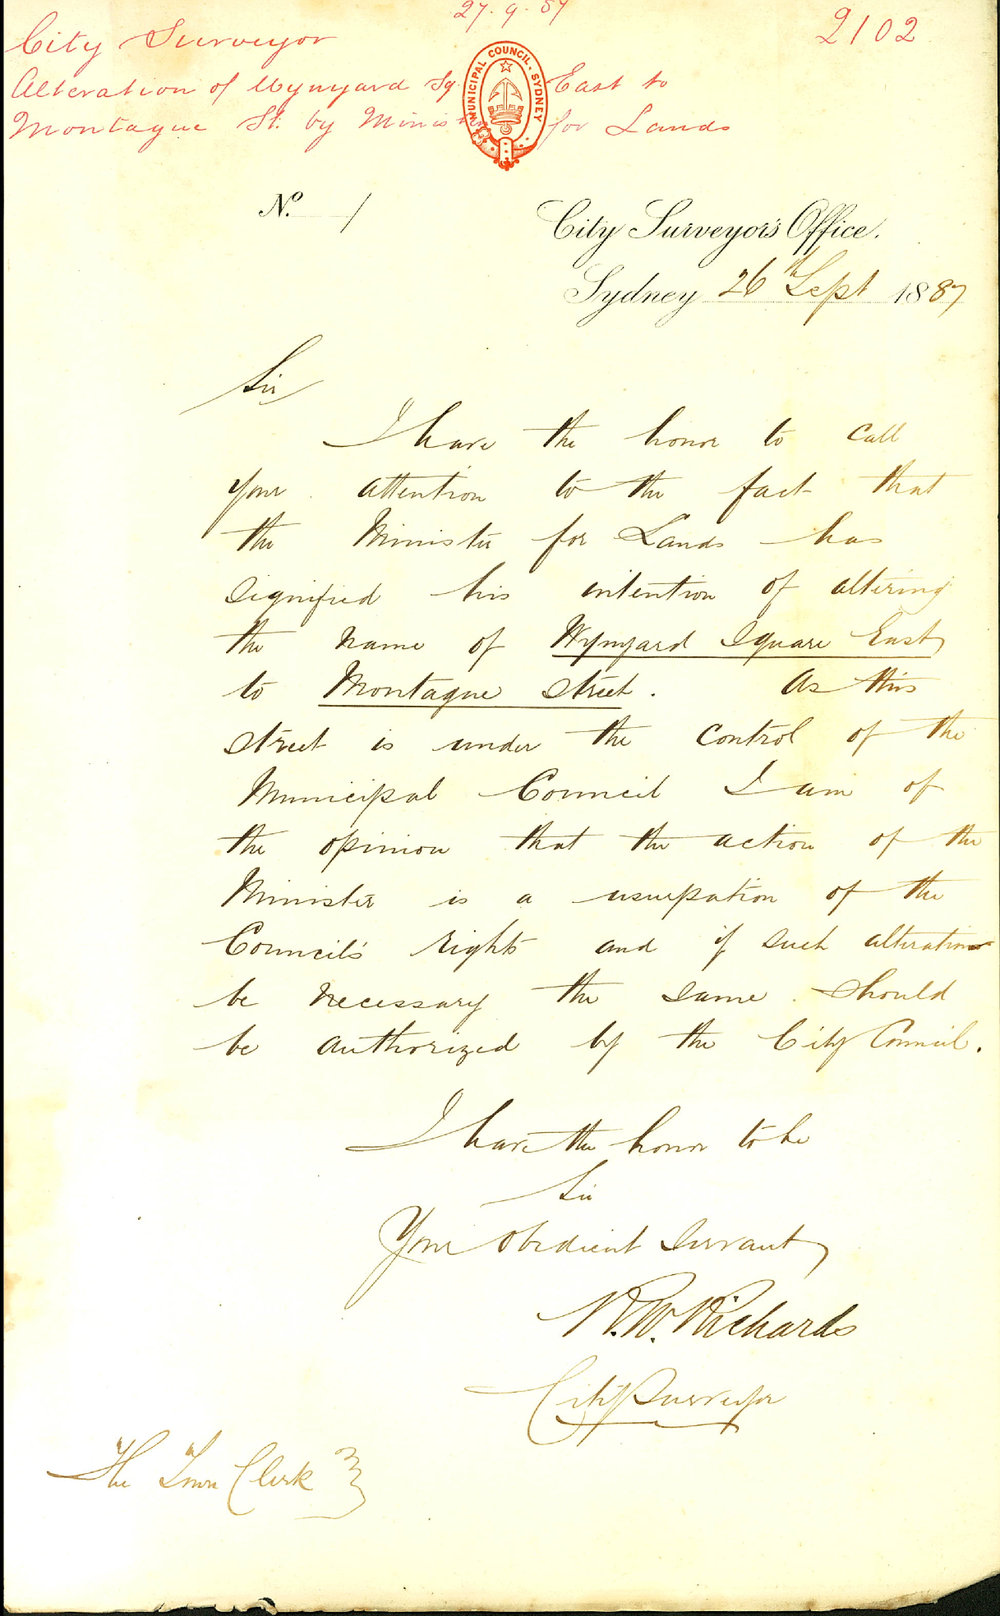 27.9.87
2102
City Surveyor
Alteration of Wynyard Sq. East to
Montague St. by Minister for Lands
MUNICIPAL COUNCIL. SYDNEY
No. 1
City Surveyor's Office.
Sydney 26th Sept 1887
Sir
I have the honor to call
your attention to the fact that
the Minister for Lands has
signified his intention of altering
the name of Wynyard Square East
to Montague Street. As this
street is under the control of the
Municipal Council I am of
the opinion that the action of the
Minister is a usurpation of the
Council's rights and if such alteration
be necessary the same should
be authorized by the City Council.
I have the honor to be
Sir
Your obedient Servant
R.W. Richards
City Surveyor
The Town Clerk